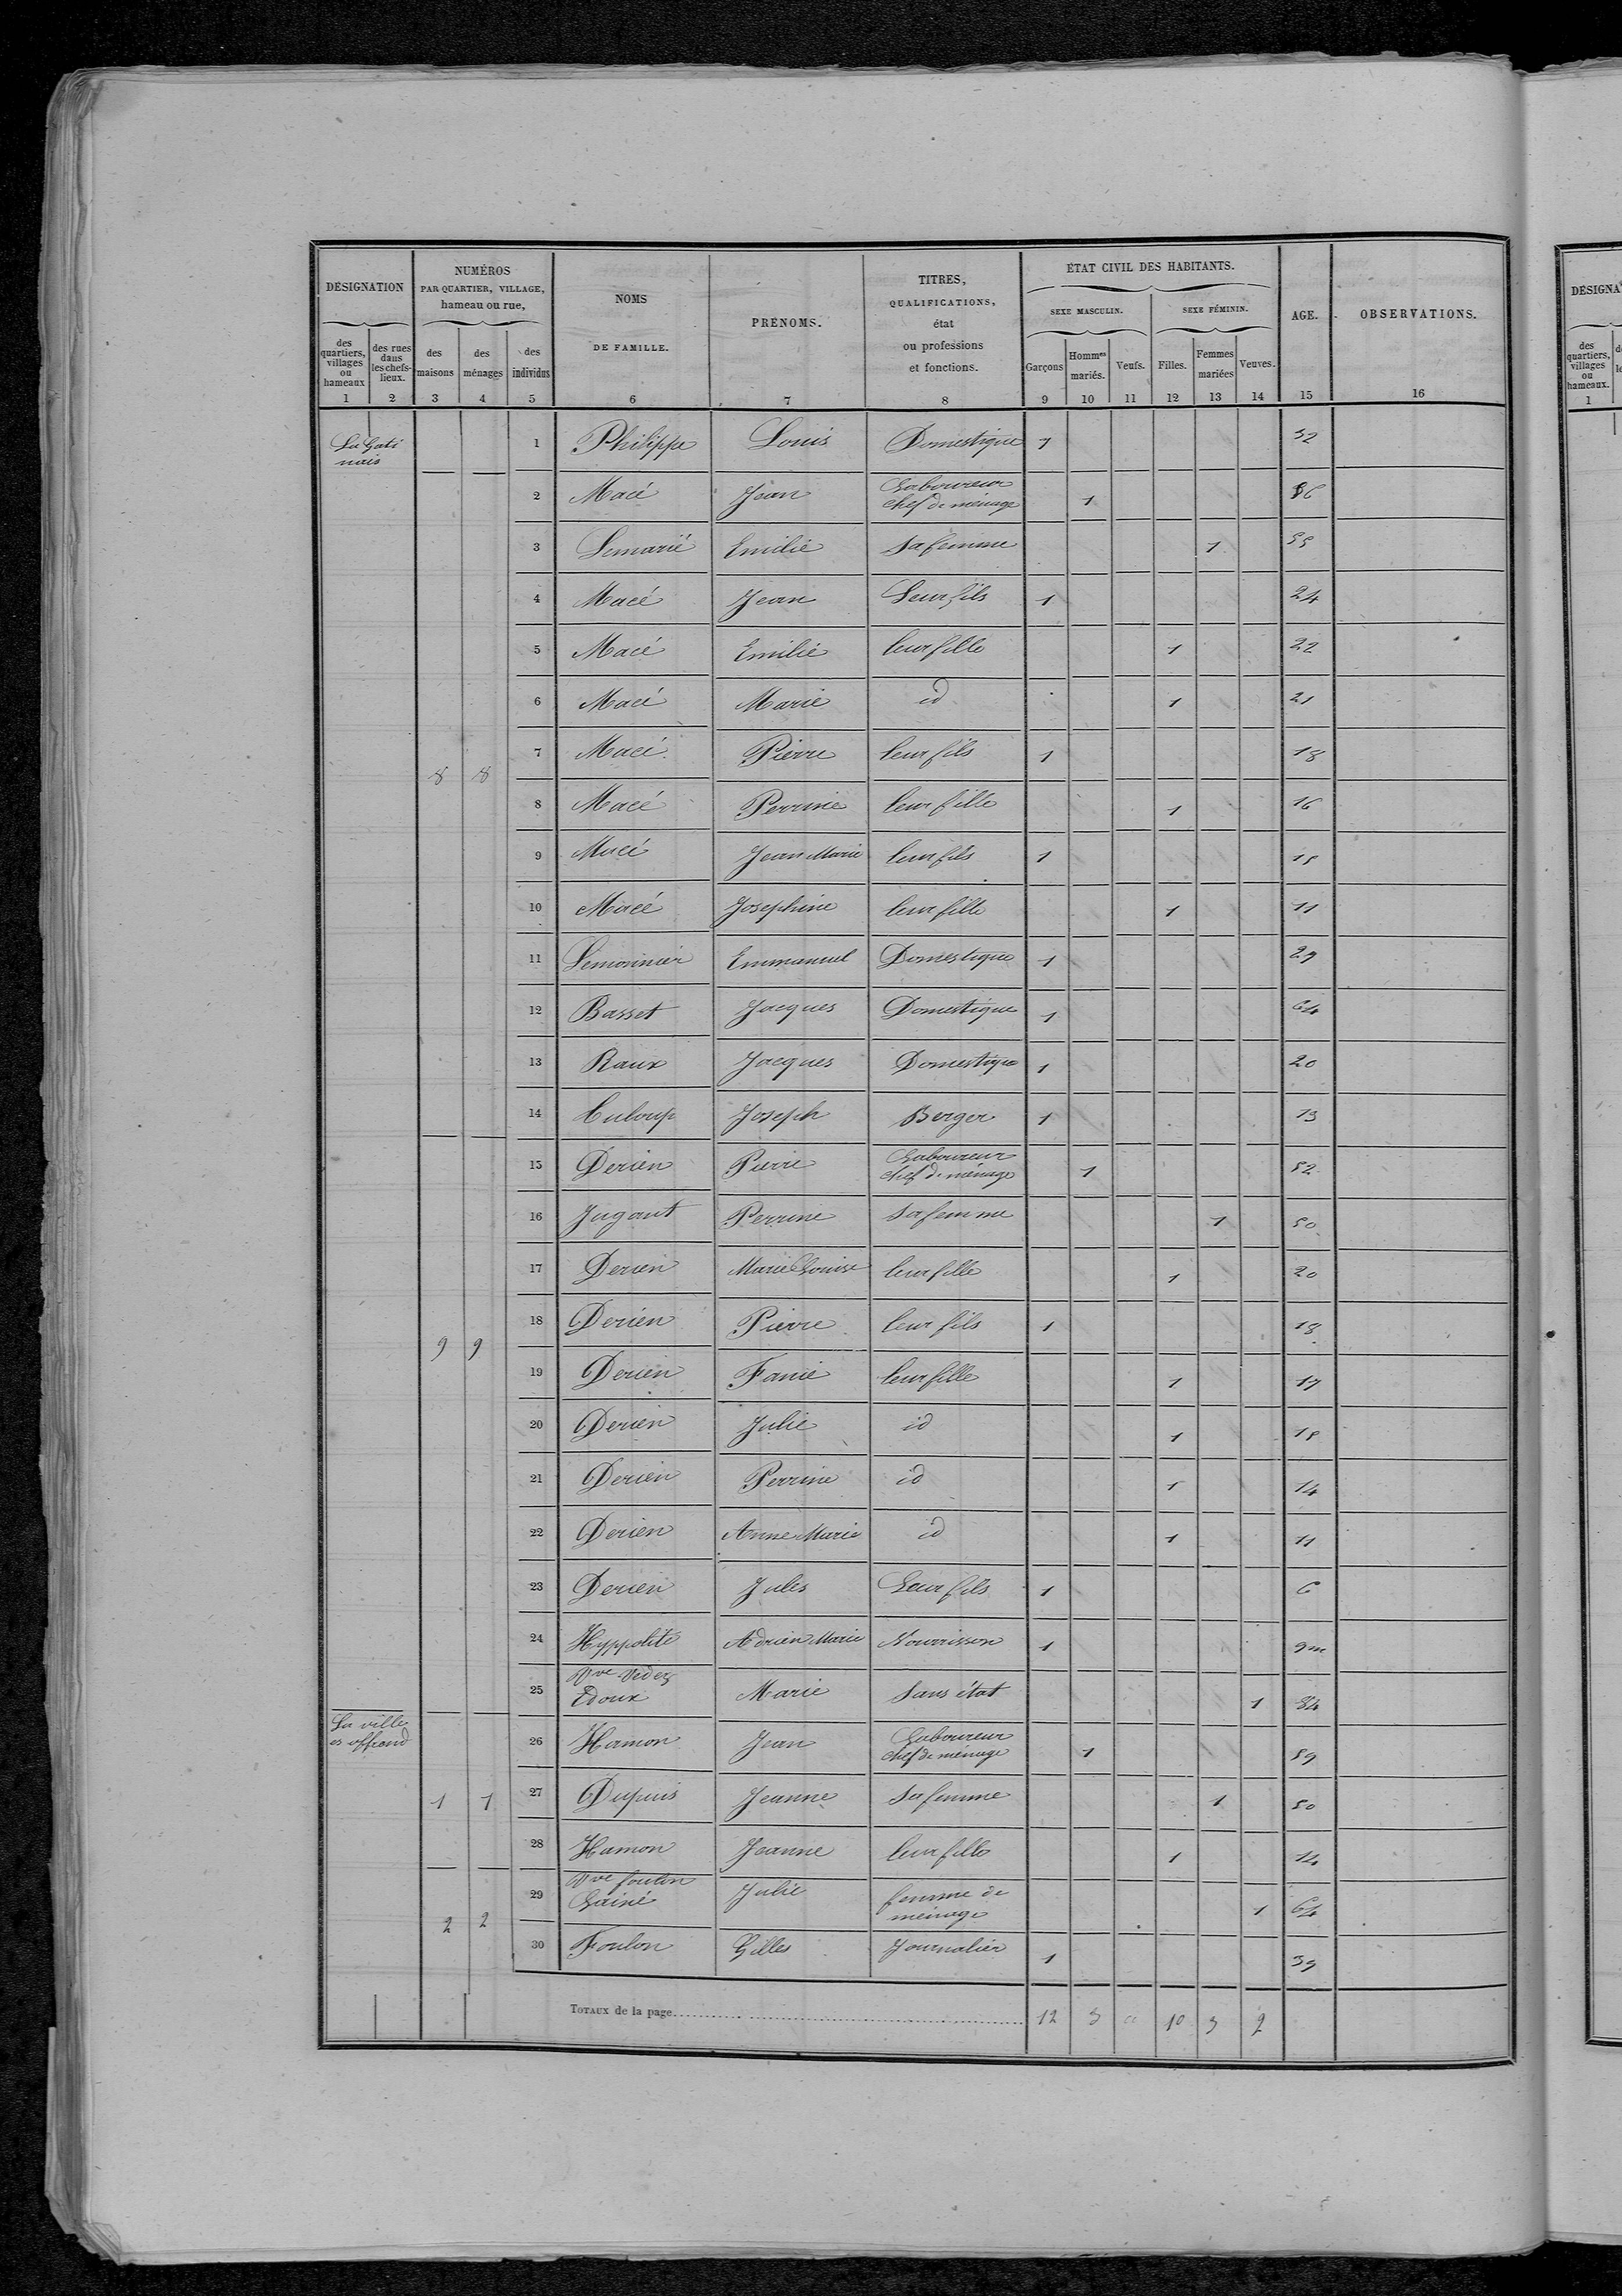 DÉSIGNATION
NUMÉROS
PAR QUARTIER, VILLAGE,
hameau ou rue,
NOMS
DE FAMILLE.
PRÉNOMS.
TITRES,
QUALIFICATIONS,
état
ou professions
et fonctions.
ÉTAT CIVIL DES HABITANTS.
SEXE MASCULIN.
SEXE FÉMININ.
AGE.
OBSERVATIONS.
des quartiers, villages ou hameaux
des rues dans les chefs-lieux.
des maisons
des ménages
des individus
Garçons
Hommes mariés.
Veufs.
Filles.
Femmes mariées
Veuves.
1 2 3 4 5 6 7 8 9 10 11 12 13 14 15 16
La Gati
nais
1 Philippe Louis Domestique 1 32
2 Macé Jean Laboureur chef de ménage 1 56
3 Lemarié Emilie Sa femme 1 55
4 Macé Jean Leur fils 1 24
5 Macé Emilie leur fille 1 22
6 Macé Marie id 1 21
7 Macé Pierre leur fils 1 18
8 8
8 Macé Perrine leur fille 1 16
9 Macé Jean Marie leur fils 1 15
10 Macé Josephine leur fille 1 11
11 Lemonnier Emmanuel Domestique 1 29
12 Basset Jacques Domestique 1 64
13 Raux Jacques Domestique 1 20
14 Culoup Joseph Berger 1 13
15 Derien Pierre Laboureur chef de ménage 1 52
16 Jugant Perrine Sa femme 1 50
17 Derien Marie Louise leur fille 1 20
18 Derien Pierre leur fils 1 18
9 9
19 Derien Fanie leur fille 1 17
20 Derien Julie id 1 15
21 Derien Perrine id 1 14
22 Derien Anne Marie id 1 11
23 Derien Jules Leur fils 1 6
24 Hyppolite Adrien Marie Nourrisson 1 9m
25 Vve Videz Edoux Marie Sans état 1 84
La ville
es offrand
26 Hamon Jean Laboureur chef de ménage 1 59
1 1 27 Dupuis Jeanne Sa femme 1 50
28 Hamon Jeanne leur fille 1 14
29 Vve foulon Lainé Julie femme de ménage 1 64
2 2
30 Foulon Gilles Journalier 1 39
TOTAUX de la page 12 3 " 10 3 2
DÉSIGNA
des quartiers, villages ou hameaux.
1